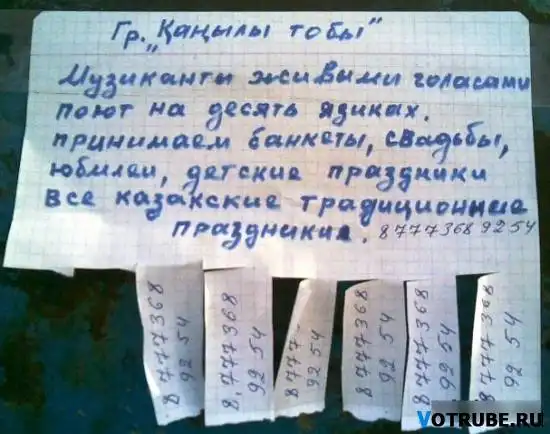 Гр. „Қаңылы тобы"
Музиканты живыми голасами
поют на десять язиках.
принимаем банкеты, свадьбы,
юбилеи, детские праздники
все казакские традиционные
праздники. 8777368 92 54
8777368
92 54
8.777368
92 54
8777-
92 54
8777368
92 54
8777368
92 54
8777368
92 54
VOTRUBE.RU